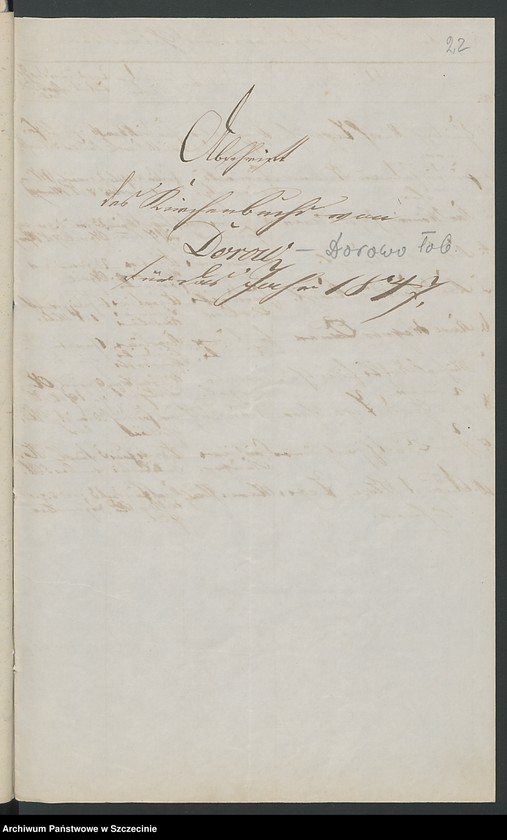 22
Abschrift
des Kirchenbuchs von
Dorow – Dorowo Łob.
für das Jahr 1847.
Archiwum Państwowe w Szczecinie